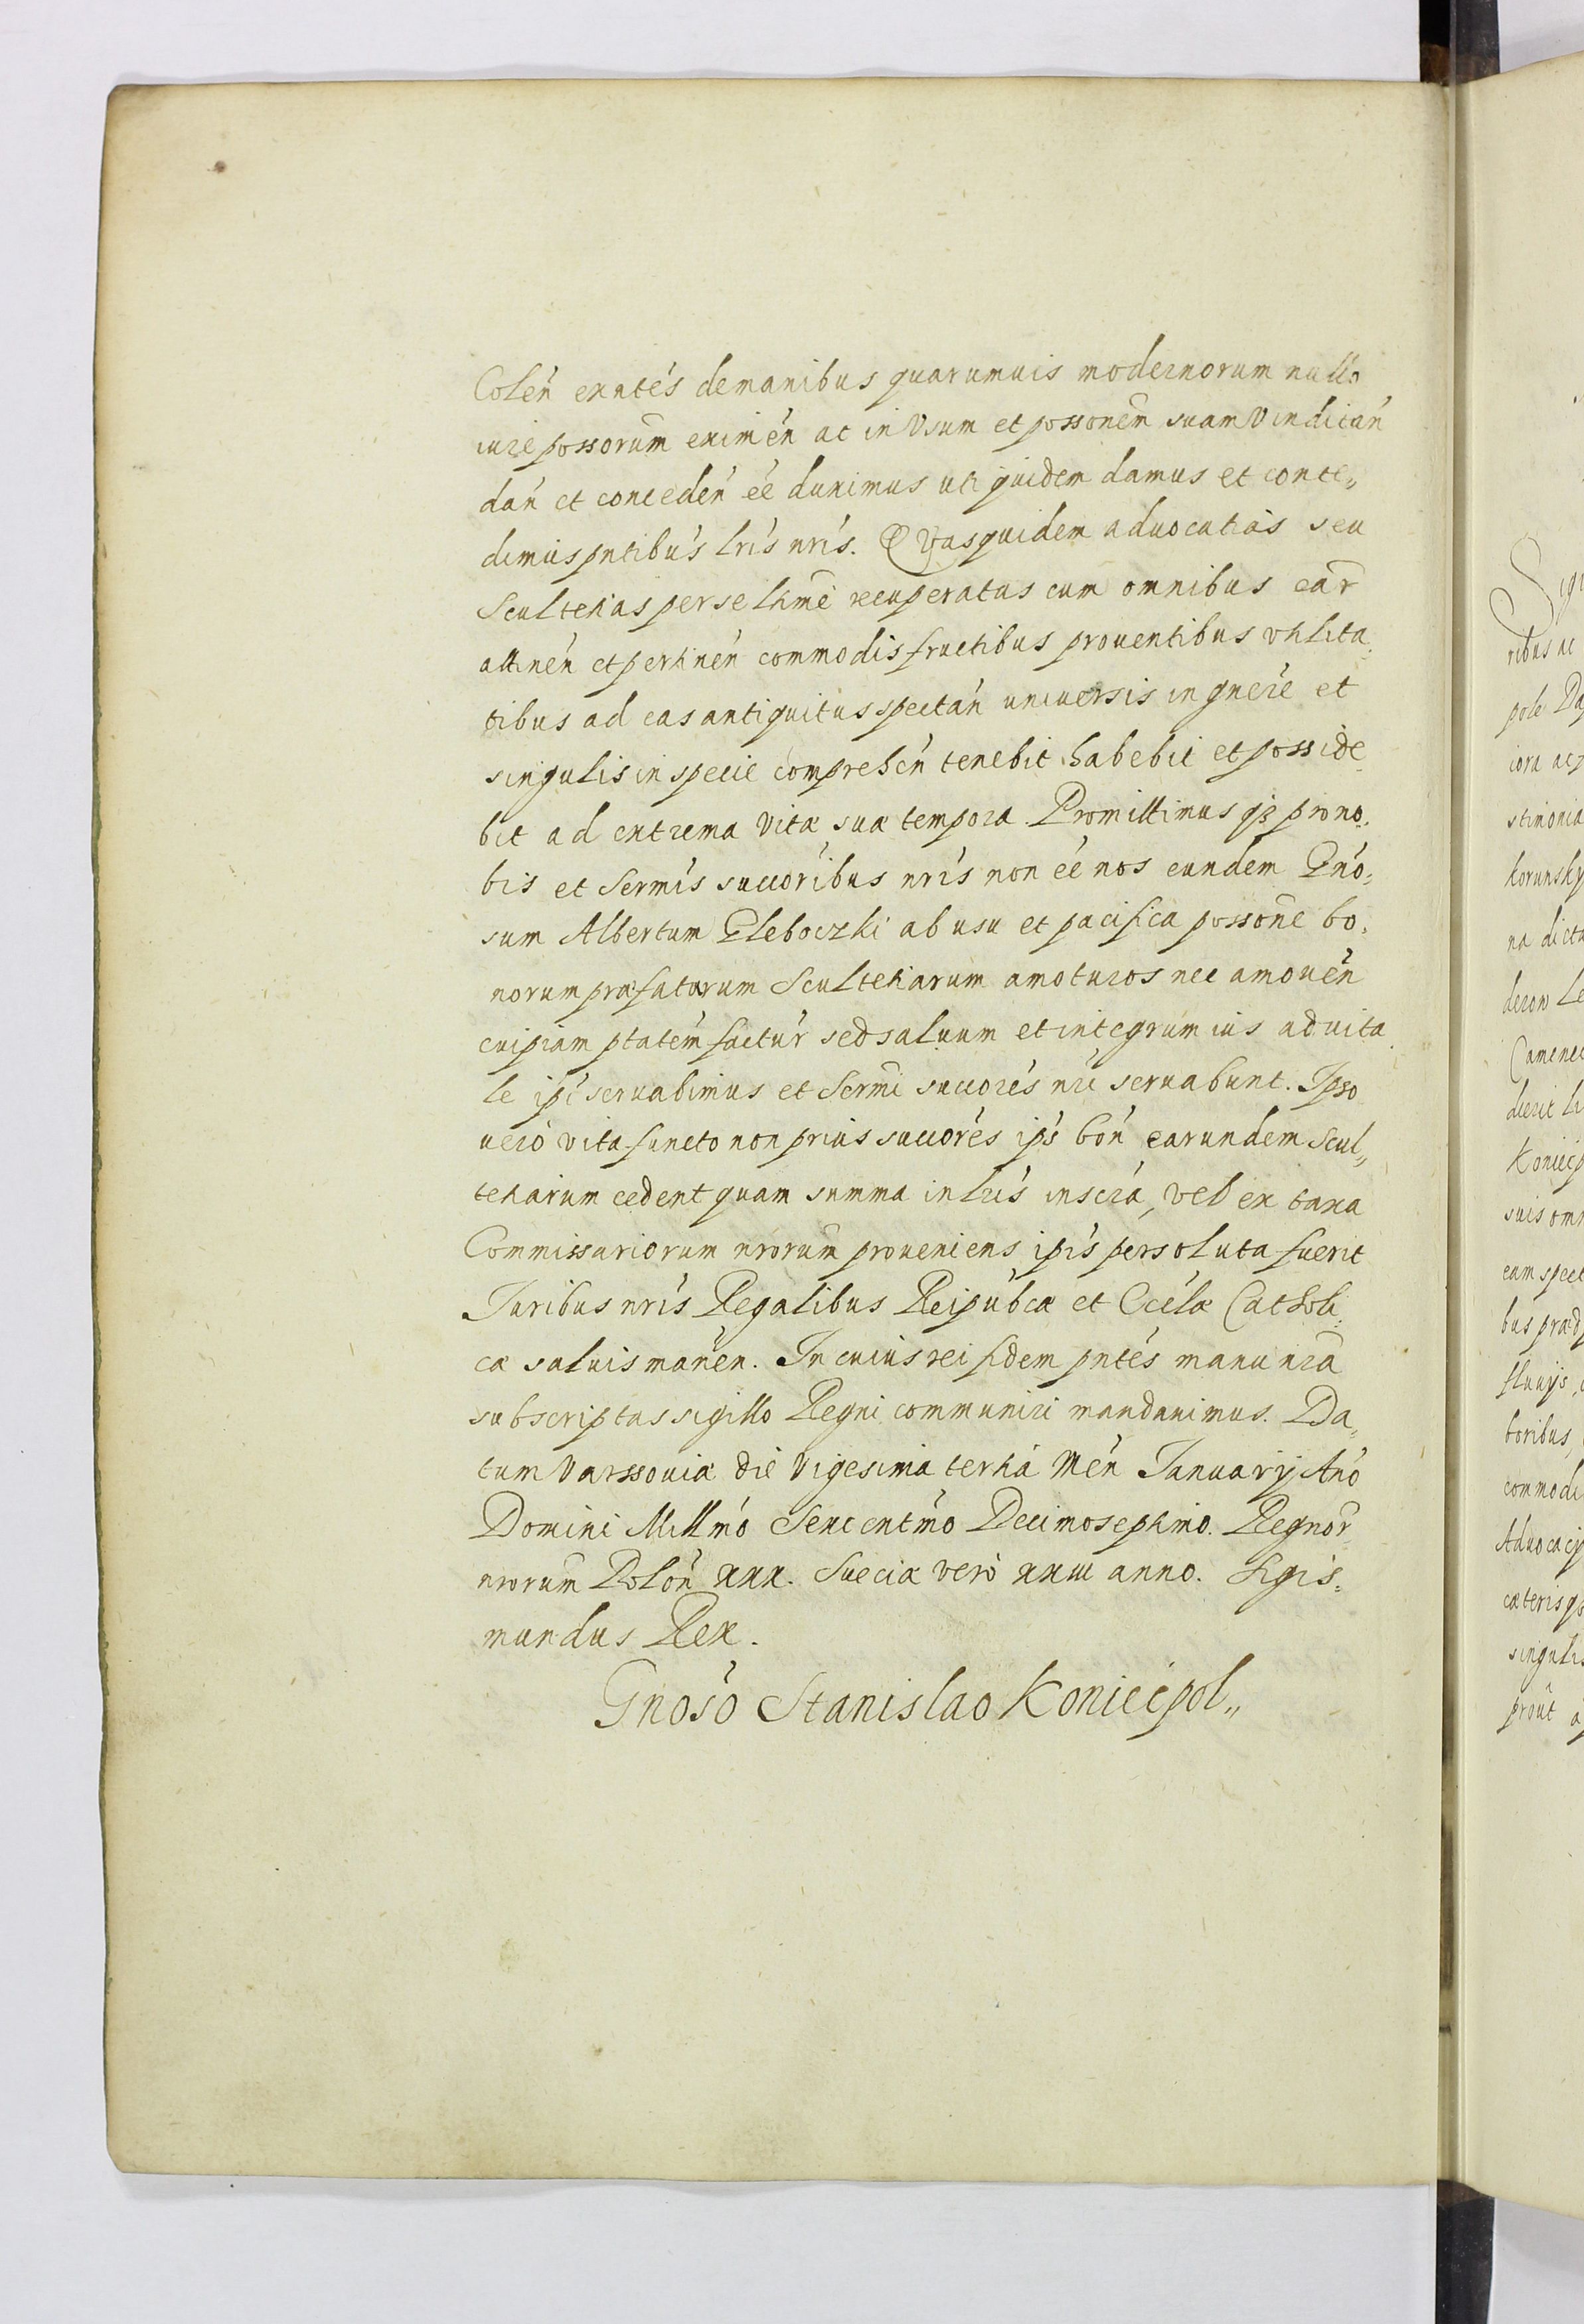 Colen̄ exn̄tes de manibus quarumuis modernorum nullo
iure possorum̄ eximen̄ ac in Vsum et possonem̄ suam Vindican̄
dan̄ et conceden̄ ēē duximus uti quidem damus et conce„
dimus pn̄tibus lr̄is nr̄is. Quas quidem aduocatias seu
Scultetias per se ltimē recuperatas cum omnibus ear̄
attinen̄ et pertinen̄ commodis fructibus prouentibus vtilita„
tibus ad eas antiquitus spectan̄ uniuersis in gn̄ere et
singulis in specie comprehen̄ tenebit habebit et posside„
bit ad extrema Vitæ suæ tempora. Promittimus qȝ pro no„
bis et Sermīs succorībus nr̄is non ēē nos eundem Gnō„
sum Albertum Gleboczki ab usu et pacifica possonē bo„
norum præfatarum Scultetiarum amoturos nec amouen̄
cuipiam ptatem̄ factur̄ sed saluum et integrum ius aduita„
le ipī seruabimus et Sermī succorēs nr̄i seruabunt. Ipso
uero vita functo non prius succorēs ips̄ bon̄ earundem Scul„
tetiarum cedent quam summa in lr̄is inscrā, vel ex taxa
Commissariorum nrorum̄ proueniens ipīs persoluta fuerit
Iuribus nr̄is Regalibus Reipub̄cæ et Ecclǣ Catholi„
cæ saluis manen̄. In cuius rei fidem pn̄tes manu nrā
subscriptas sigillo Regni communiri mandauimus. Da„
tum Varssouiæ die Vigesima tertia Men̄ Ianuarij Anō
Domini Millmō Sexcentmō Decimoseptimo. Regnor̄
nrorum̄ Polon̄ xxx. Sueciæ vero xxiii anno. Sigis„
mundus Rex.
Gnosō Stanislao Koniecpol„